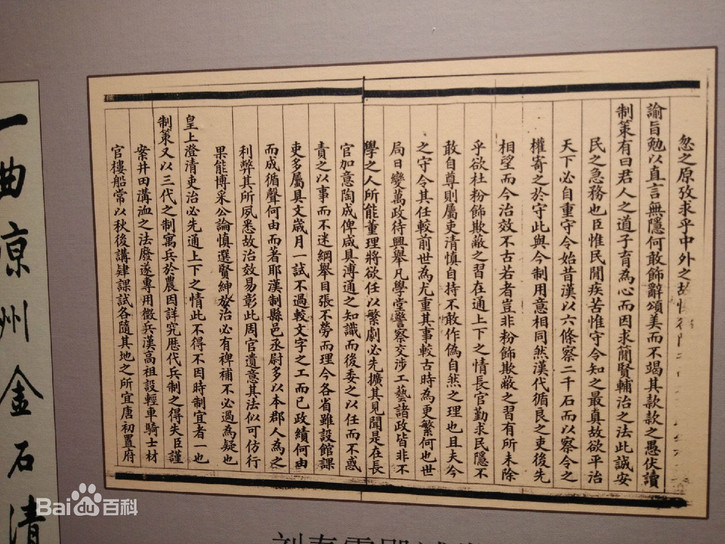 忽之原攷求乎中外之故
諭旨勉以直言無隱何敢飾辭頌美而不竭其款款之愚伏讀
制策有曰君人之道子育為心而因求閭賢輔治之法此誠安
民之急務也臣惟民間疾苦惟守令知之最真故欲平治
天下必自重守令始昔漢以六條察二千石而以察令之
權寄之於守此與今制用意相同然漢代循良之吏後先
相望而今治效不古若者豈非粉飾欺蔽之習有所未除
乎欲杜粉飾欺蔽之習在通上下之情長官勤求民隱不
敢自尊則屬吏清慎自持不敢作偽自然之理也且夫今
之守令其任較前世為尤重其事較古時為更繁何也世
局日變萬政待興舉凡學堂警察交涉工藝諸政皆非不
學之人所能董理將欲任以繁劇必先擴其見聞是在長
官加意陶成俾咸具溥通之知識而後委之以任而不惑
責之以事而不迷綱舉目張不勞而理今各省雖設館課
吏多屬具文歲月一試不過較文字之工而已政績何由
而成循聲何由而著耶漢制縣邑丞尉多以本郡人為之
利弊其所夙悉故治效易彰此周官遺意其法似可仿行
果能博采公論慎選賢紳於治必有裨補不必過為疑也
皇上澄清吏治必先通上下之情此不得不因時制宜者一也
制策又以三代之制寓兵於農因詳究歷代兵制之得失臣謹
案井田溝洫之法廢遂專用徵兵漢高祖設輕車騎士材
官樓船常以秋後講肄課試各隨其地之所宜唐初置府
一曲涼州金石清
劉春霖殿試
Bai 百科